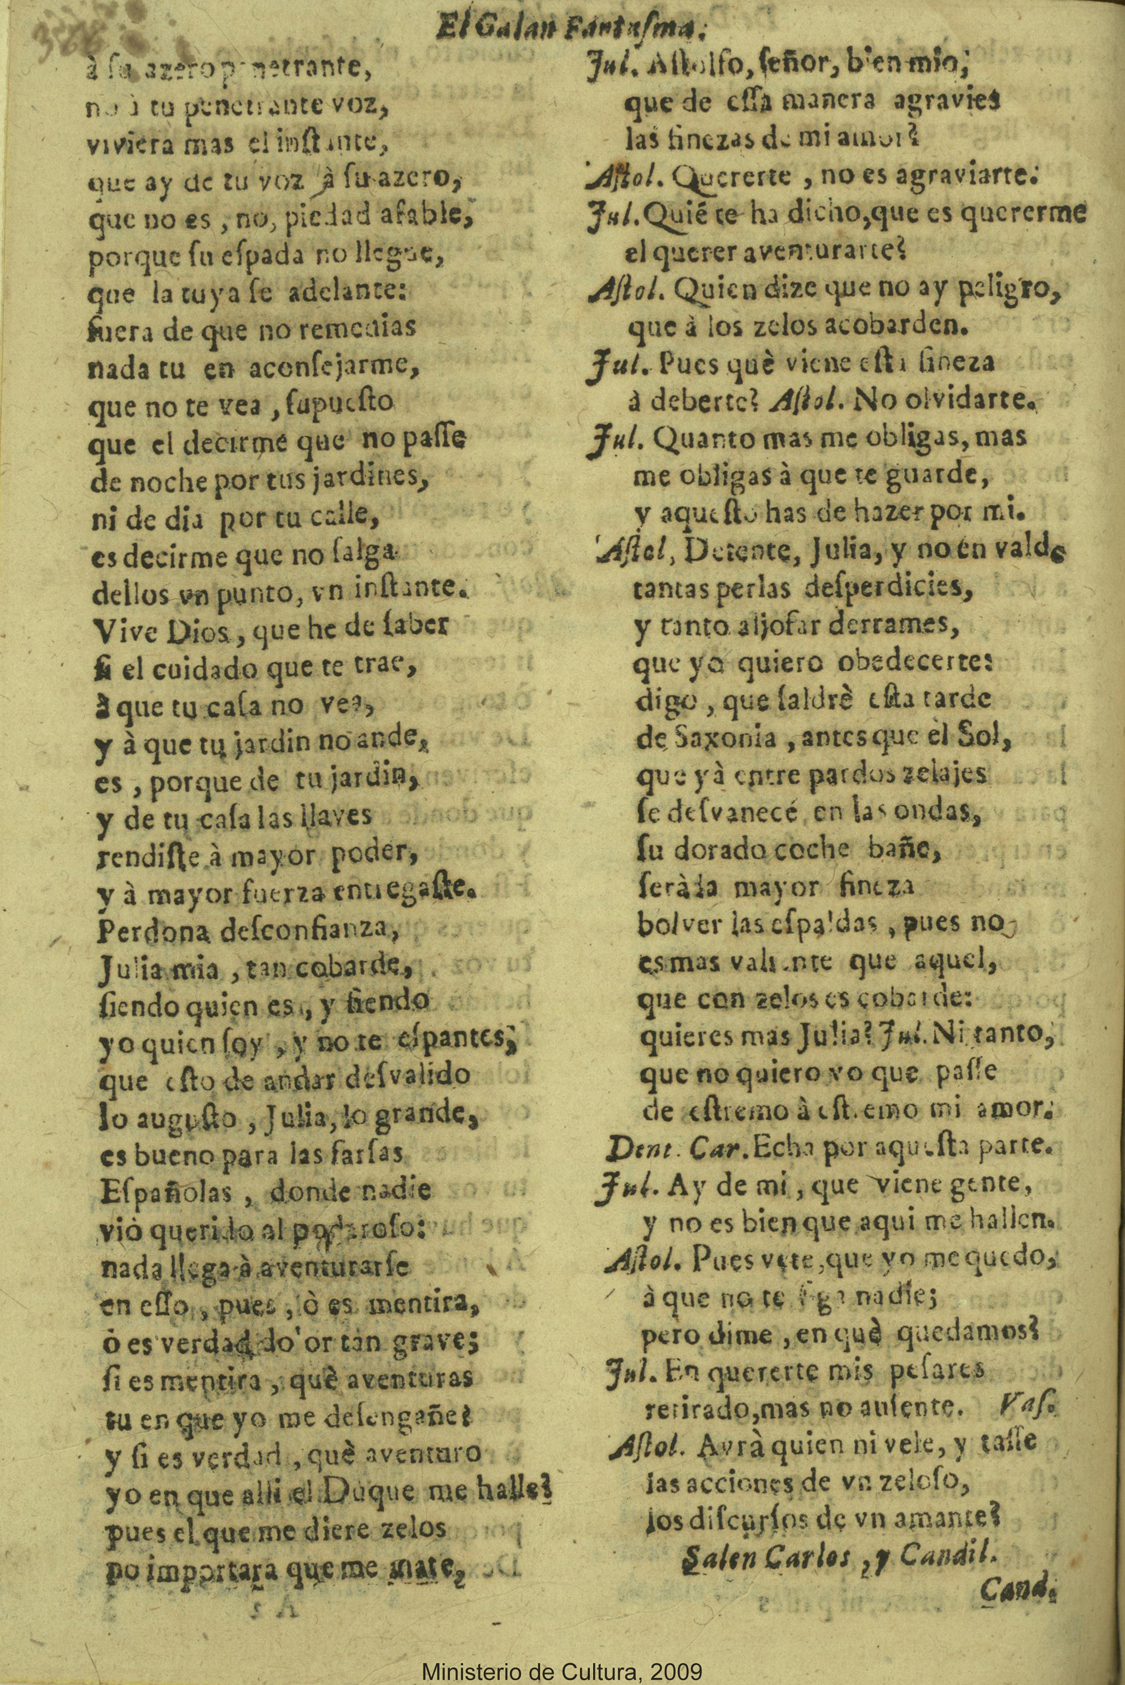 El Galan Fantasma.
366
à su azero penetrante,
no à tu penetrante voz,
viviera mas el instante,
que ay de tu voz à su azero,
que no es, no, piedad afable,
porque su espada no llegue,
que la tuya se adelante:
fuera de que no remedias
nada tu en aconsejarme,
que no te vea, supuesto
que el decirme que no passe
de noche por tus jardines,
ni de dia por tu calle,
es decirme que no salga
dellos vn punto, vn instante.
Vive Dios, que he de saber
si el cuidado que te trae,
à que tu casa no vea,
y à que tu jardin no ande,
es, porque de tu jardin,
y de tu casa las llaves
rendiste à mayor poder,
y à mayor fuerza entregaste.
Perdona desconfianza,
Julia mia, tan cobarde,
siendo quien es, y siendo
yo quien soy, y no te espantes;
que esto de andar desvalido
lo augusto, Julia, lo grande,
es bueno para las farsas
Españolas, donde nadie
viò querido al poderoso:
nada llega à aventurarse
en esso, pues, ò es mentira,
ò es verdad dolor tan grave;
si es mentira, què aventuras
tu en que yo me desengañe?
y si es verdad, què aventuro
yo en que alli el Duque me halle?
pues el que me diere zelos
no importara que me mate,
Jul. Astolfo, señor, bien mio;
que de essa manera agravies
las finezas de mi amor?
Astol. Quererte, no es agraviarte:
Jul. Quiẽ te ha dicho, que es quererme
el querer aventurarte?
Astol. Quien dize que no ay peligro,
que à los zelos acobarden.
Jul. Pues què viene esta fineza
à deberte? Astol. No olvidarte.
Jul. Quanto mas me obligas, mas
me obligas à que te guarde,
y aquesto has de hazer por mi.
Astol, Detente, Julia, y no en valde
tantas perlas desperdicies,
y tanto aljofar derrames,
que yo quiero obedecerte:
digo, que saldrè esta tarde
de Saxonia, antes que el Sol,
que yà entre pardos zelajes
se desvanece en las ondas,
su dorado coche bañe,
serà la mayor fineza
bolver las espaldas, pues no
es mas valiente que aquel,
que con zelos es cobarde:
quieres mas Julia? Jul. Ni tanto,
que no quiero yo que passe
de estremo à estremo mi amor.
Dent. Car. Echa por aquesta parte.
Jul. Ay de mi, que viene gente,
y no es bien que aqui me hallen.
Astol. Pues vete, que yo me quedo,
à que no te siga nadie;
pero dime, en què quedamos?
Jul. En quererte mis pesares
retirado, mas no ausente. Vas.
Astol. Avrà quien nivele, y tasse
las acciones de vn zeloso,
los discursos de vn amante?
Salen Carlos, y Candil.
Cand.
Ministerio de Cultura, 2009